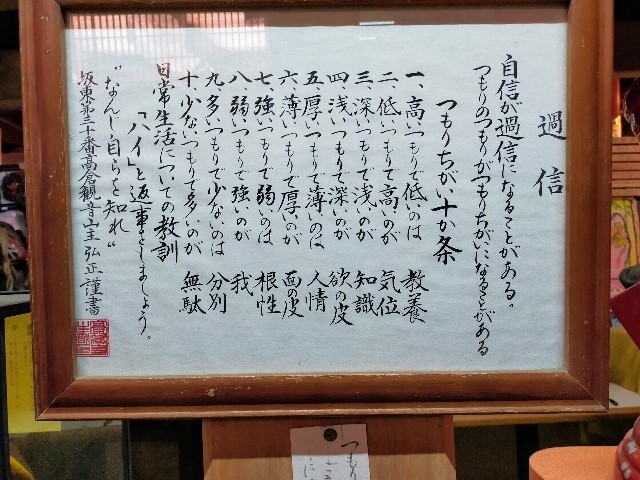 過信
自信が過信になることがある。
つもりのつもりがつもりちがいになることがある
つもりちがい十か条
一、高いつもりで低いのは 教養
二、低いつもりで高いのが 気位
三、深いつもりで浅いのが 知識
四、浅いつもりで深いのが 欲の皮
五、厚いつもりで薄いのは 人情
六、薄いつもりで厚いのが 面の皮
七、強いつもりで弱いのは 根性
八、弱いつもりで強いのが 我
九、多いつもりで少ないのが 分別
十、少ないつもりで多いのが 無駄
日常生活についての教訓
「ハイ」と返事をしましょう。
“なんじ自らを知れ”
坂東第三十番高倉観音山主 弘正謹書
つもり